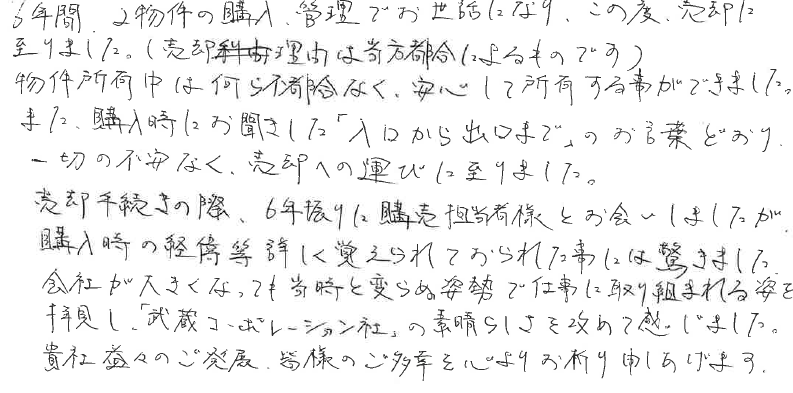 6年間、2物件の購入、管理でお世話になり、この度、売却に
至りました。(売却理由は当方都合によるものです)
物件所有中は何ら不都合なく、安心して所有する事ができました。
また、購入時にお聞きした「入口から出口まで」のお言葉どおり、
一切の不安なく、売却への運びに至りました。
売却手続きの際、6年振りに購売担当者様とお会いしましたが、
購入時の経偉等詳しく覚えられておられた事には驚きました。
会社が大きくなっても当時と変らぬ姿勢で仕事に取り組まれる姿を
拝見し、「武蔵コーポレーション社」の素晴らしさを改めて感じました。
貴社益々のご発展、皆様のご多幸を心よりお祈り申しあげます。